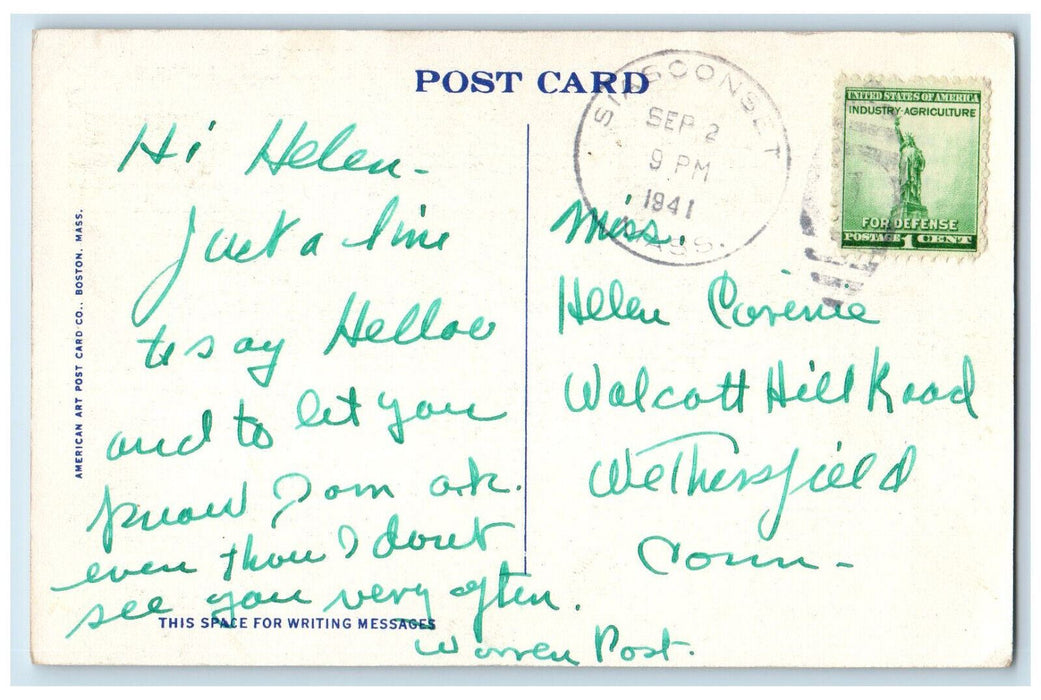 POST CARD
SIASCONSET
SEP 2
9 PM
1941
MASS.
UNITED STATES OF AMERICA
INDUSTRY-AGRICULTURE
FOR DEFENSE
POSTAGE 1 CENT
AMERICAN ART POST CARD CO., BOSTON, MASS.
Hi Helen-
Just a line
to say Helloo
and to let you
know I am o.k.
even thou I dont
see you very often.
Warren Post.
THIS SPACE FOR WRITING MESSAGES
Miss.
Helen
Walcott Hill Road
Wethersfield
Conn-